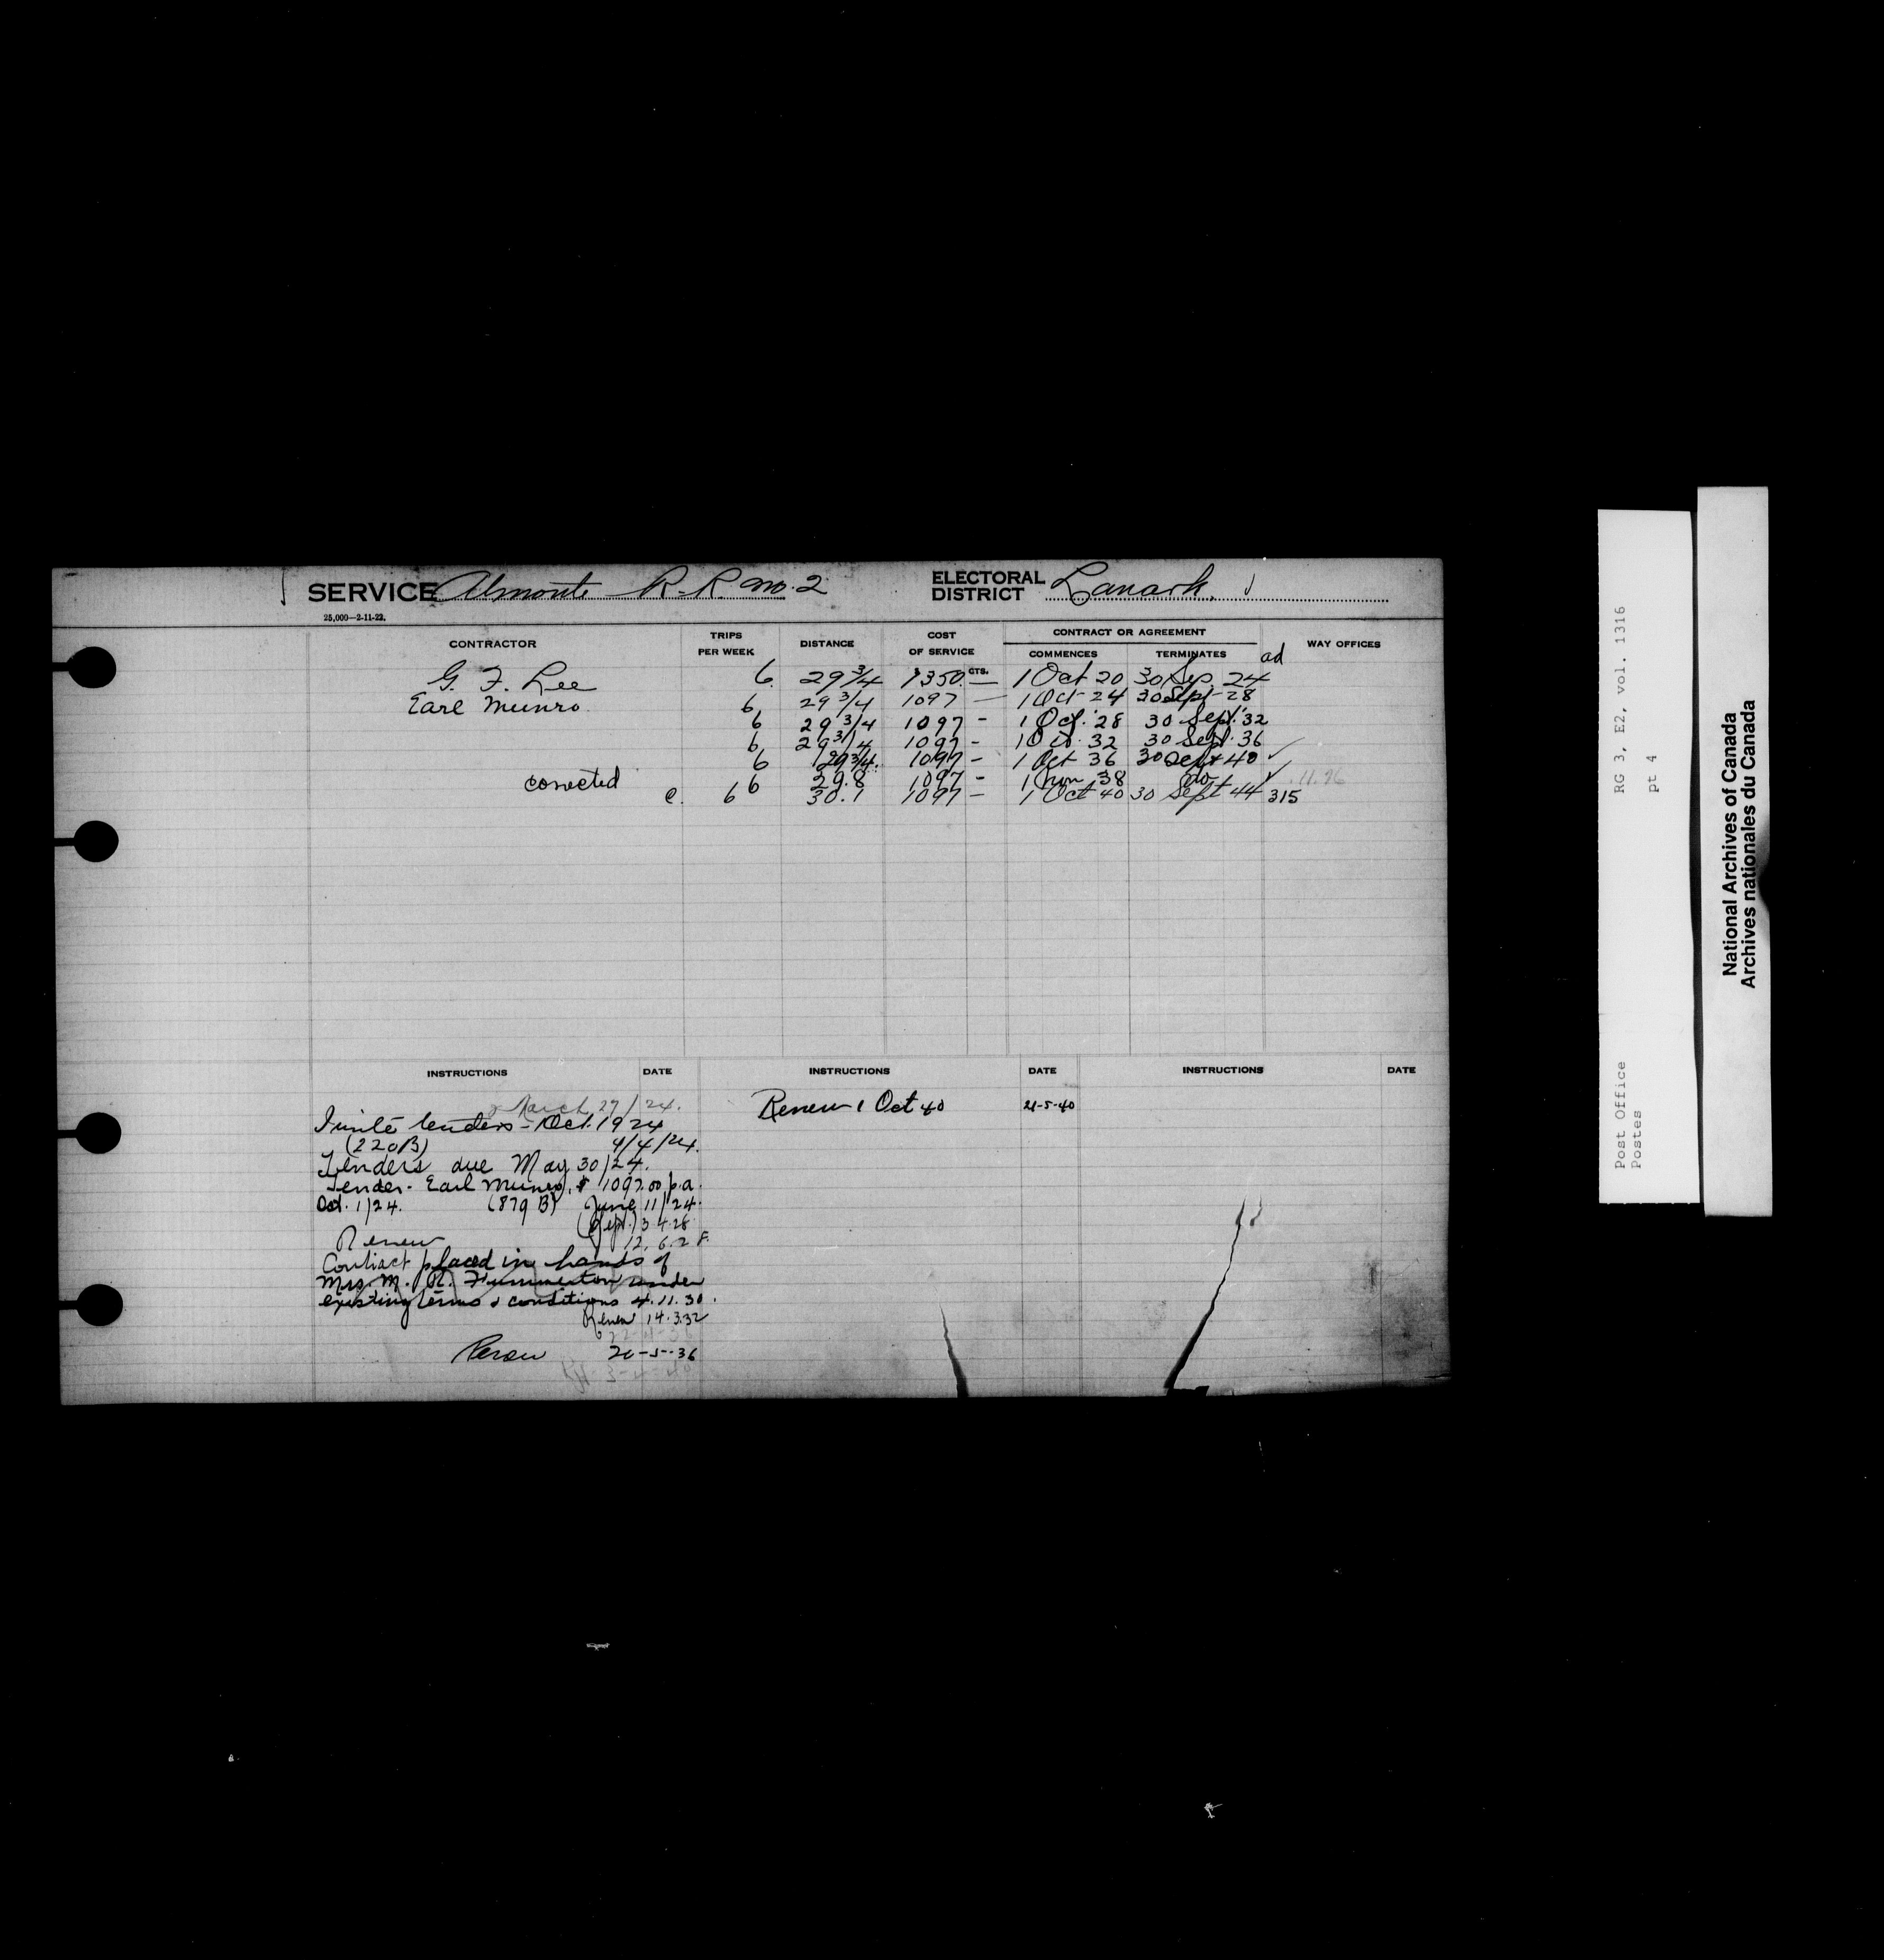 SERVICE Almonte R.R. No. 2 ELECTORAL DISTRICT Lanark.
25,000—2-11-23.
CONTRACTOR TRIPS PER WEEK DISTANCE COST OF SERVICE CONTRACT OR AGREEMENT COMMENCES TERMINATES WAY OFFICES
ad
CTS.
G. F. Lee 6 29 3/4 1350. — 1 Oct 20 30 Sep 24
Earl Munro 6 29 3/4 1097 — 1 Oct 24 30 Sept 28
6 29 3/4 1097 - 1 Oct. '28 30 Sept. '32
6 29 3/4 1097 - 1 Oct. 32 30 Sept. 36
6 29 3/4 1097 - 1 Oct 36 30 Sept 40 ✓
corrected 6 29.8 1097 - 1 38 do ✓
c. 6 30.1 1097 - 1 Oct 40 30 Sept 44 315
INSTRUCTIONS DATE INSTRUCTIONS DATE INSTRUCTIONS DATE
March 27/24.
Invite tenders - Oct. 1924
(220B) 4/4/24.
Tenders due May 30/24.
Tender - Earl Munro, $1097.00 p.a.
Oct. 1/24. (879 B) June 11/24.
3.4.28
Renew 12.6.28
Contract placed in hands of
Mrs. M. R. under
existing terms & conditions 4.11.30.
Renew 14.3.32
Renew 20-5-36
Renew 1 Oct 40 21-5-40
RG 3, E2, vol. 1316
pt 4
Post Office
Postes
National Archives of Canada
Archives nationales du Canada